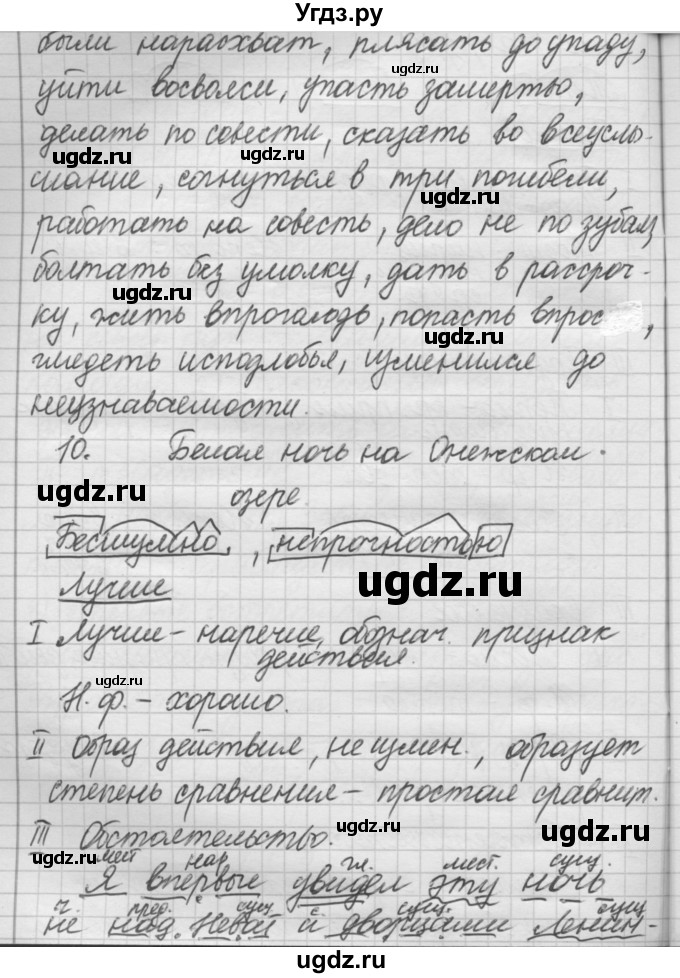 Угдз.ру
были нарасхват, плясать до упаду,
ugdz.ru
уйти восвояси, упасть замертво,
ugdz.ru
делать по совести, сказать во всеуслы-
ugdz.ru ugdz.ru
шание, согнуться в три погибели,
ugdz.ru
работать на совесть, дело не по зубам,
болтать без умолку, дать в рассроч-
ugdz.ru
ку, жить впроголодь, попасть впрос ,
глядеть исподлобья, изменился до
ugdz.ru
неузнаваемости.
10. Белая ночь на Онежском
ugdz.ru
озере.
Бесшумно, непрочностью
ugdz.ru
Лучше
I Лучше – наречие, обознач. признак
действия.
ugdz.ru
Н. ф. – хорошо.
II Образ действия, неизмен., образует
степень сравнения – простая сравнит.
III Обстоятельство.
ugdz.ru ugdz.ru
мест нар гл. мест. сущ.
Я впервые увидел эту ночь
ч. пред. сущ сущ. сущ
не над Невой и дворцами Ленин-
ugdz.ru ugdz.ru